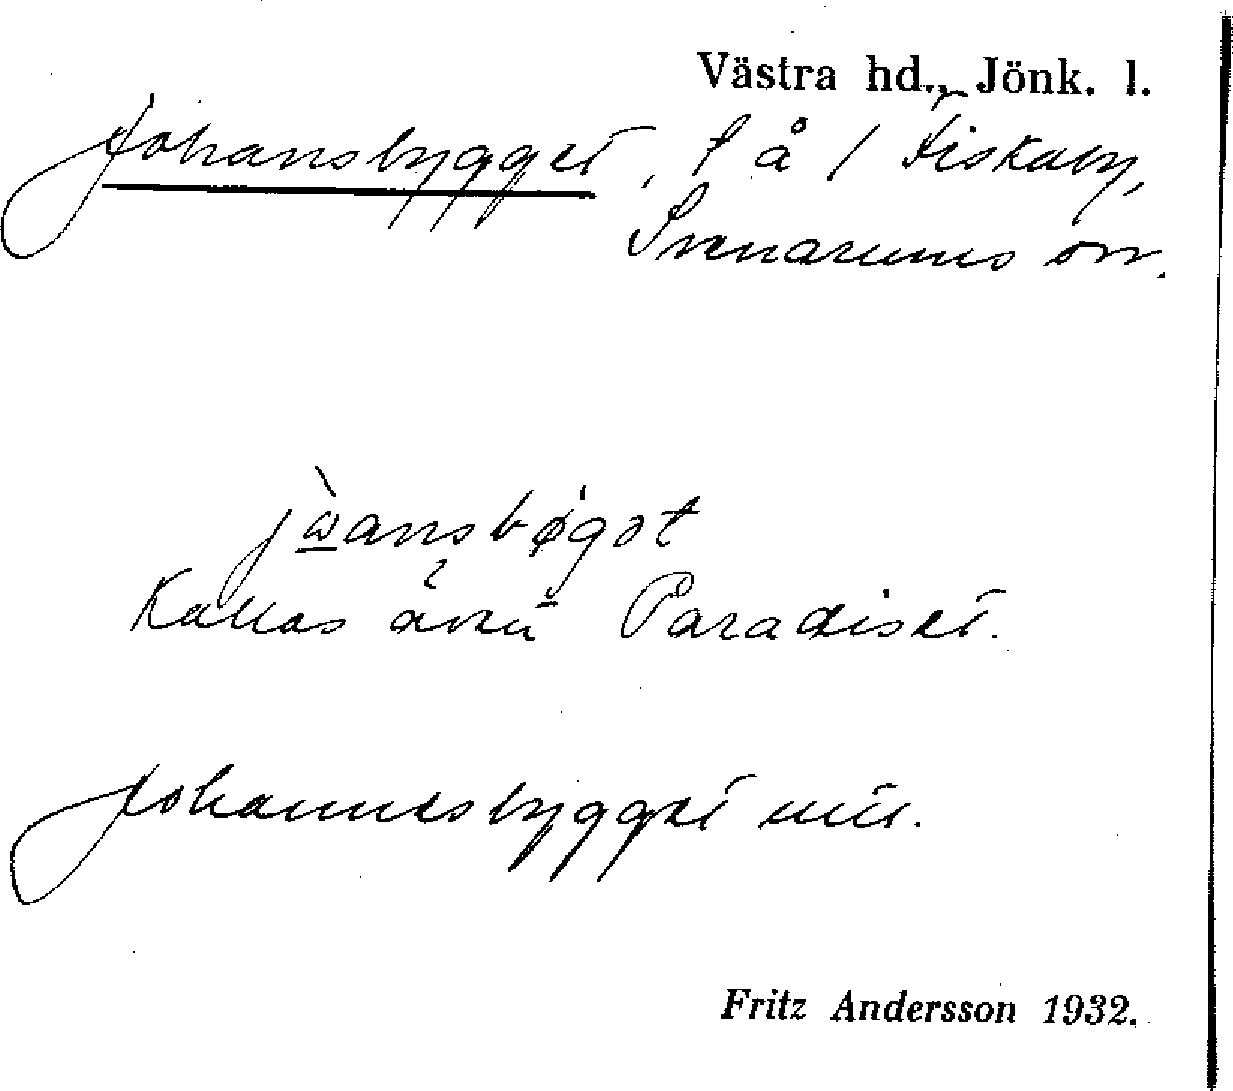 Västra hd., Jönk. l.
Johansbygget, t å / Fiskaby,
Svenarums sn.
jansbøgət
Kallas även Paradiset.
Johannesbygget
Fritz Andersson 1932.